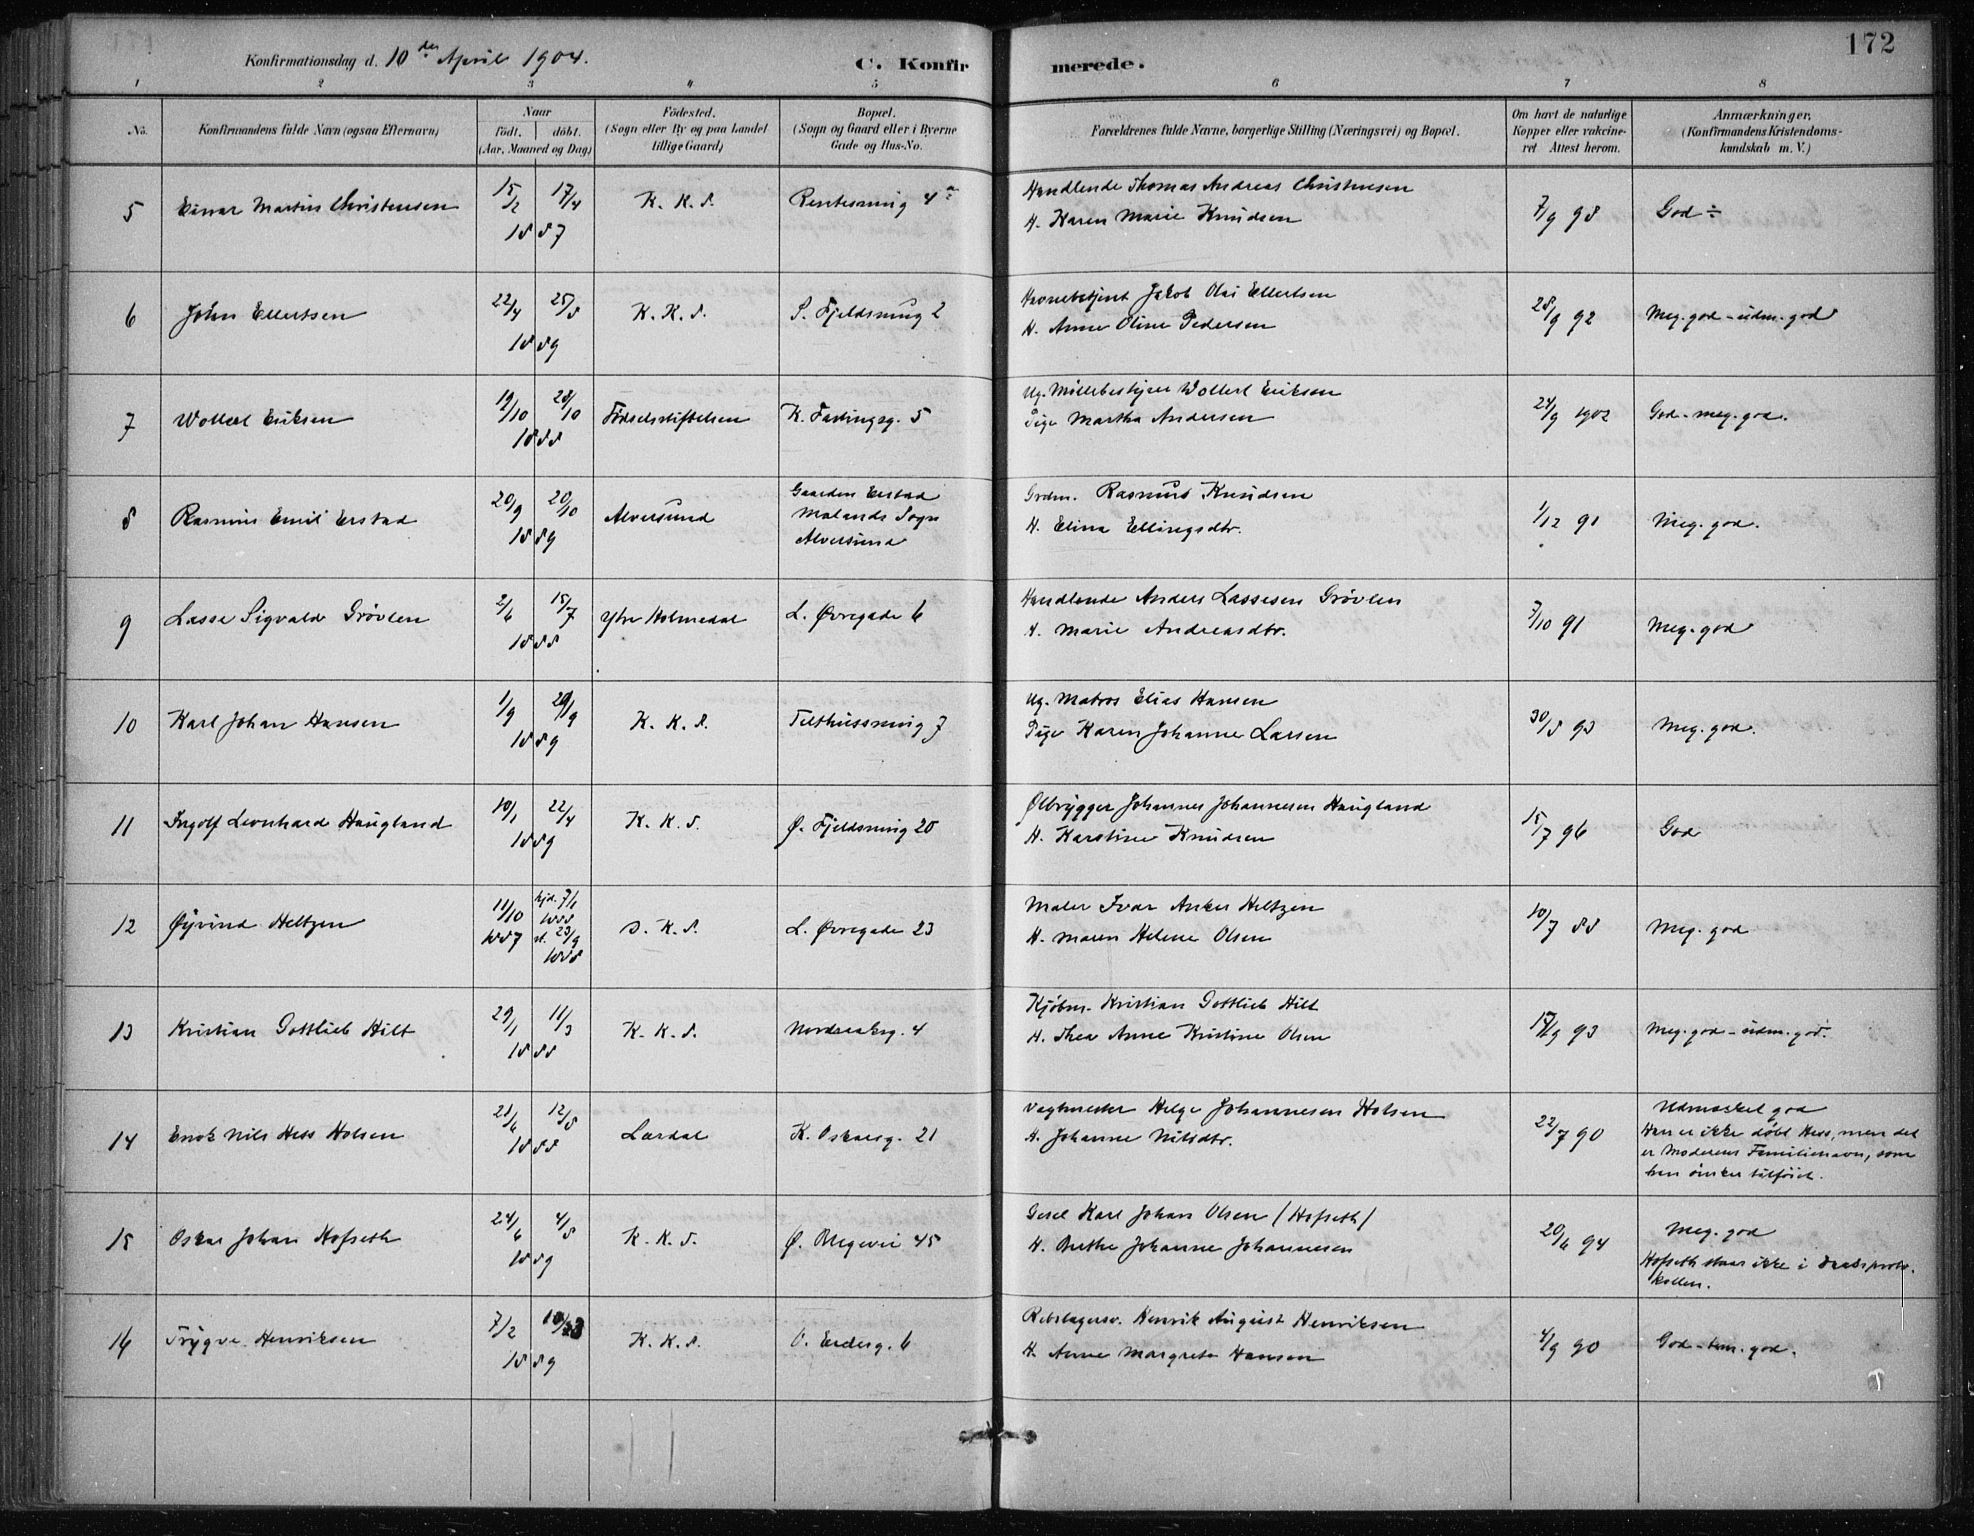 172
Konfirmationsdag d. 10 de April 1904.
C. Konfirmerede.
1 2 3 4 5 6 7 8
No.
Konfirmandens fulde Navn (ogsaa Efternavn)
Naar
födt. döbt.
(Aar, Maaned og Dag)
Födested.
(Sogn eller By og paa Landet
tillige Gaard)
Bopæl.
(Sogn og Gaard eller i Byerne
Gade og Hus-No.
Forældrenes fulde Navne, borgerlige Stilling (Næringsvei) og Bopæl.
Om havt de naturlige
Kopper eller vakcine-
ret Attest herom.
Anmærkninger,
(Konfirmandens Kristendoms-
kundskab m. V.)
5 Einar Martin Christensen 15/2 17/4 1887 K. K. S. Rentesmug 4a
Handlende Thomas Andreas Christensen
H. Karen Marie Knudsen
7/9 98 God ÷
6 Johan Ellertsen 22/4 25/8 1889 K. K. S. S. Fjeldsmug 2
Havnebetjent Jakob Olai Ellertsen
H. Anne Oline Pedersen
28/9 92 Meg. god - udm. god
7 Wollert Eriksen 19/10 28/10 1888 Födselsstiftelsen K. Fastingsg. 5
Ug. Möllebestyrer Wollert Eriksen
Pige Martha Andersen
24/9 1902 God - meg. god.
8 Rasmus Emil Erstad 20/9 20/10 1889 Alversund
Gaarden Erstad
Malands Sogn
Alversund
Grdm. Rasmus Knudsen
H. Elina Ellingsdtr.
1/12 91 Meg. god.
9 Lasse Sigvald Grövlen 2/6 15/7 1888 Ytre Holmedal L. Øvregade 6
Handlende Anders Lassesen Grövlen
H. Marie Andreasdtr.
7/10 91 Meg. god
10 Karl Johan Hansen 1/9 29/9 1889 K. K. S. Telthussmug 7
Ug. Matros Elias Hansen
Pige Karen Johanne Larsen
30/8 93 Meg. god.
11 Ingolf Leonhard Haugland 10/1 22/4 1889 K. K. S. Ø. Fjeldsmug 20
Ølbrygger Johannes Johannesen Haugland
H. Karstine Knudsen
15/7 96 God
12 Øyvind Heltzen 11/10 1887 hjd. 7/1 1888 st. 23/9 1888 D. K. S. L. Øvregade 23
Maler Ivar Anker Heltzen
H. Maren Helene Olsen
10/7 88 Meg. god
13 Kristian Gottlieb Hilt 29/1 11/3 1888 K. K. S. Nordraaksg. 4
Kjöbm. Kristian Gottlieb Hilt
H. Thea Anne Kristine Olsen
17/9 93 Meg. god - udm. god.
14 Enok Nils Hess Holsen 21/6 12/8 1888 Lærdal K. Oskarsg. 21
Vagtmester Helge Johannesen Holsen
H. Johanne Nilsdtr.
22/7 90
Udmærket god
Han er ikke döbt Hess, men det
er Moderens Familienavn, som
han önsker tilföiet.
15 Oskar Johan Hofseth 24/6 4/8 1889 K. K. S. Ø. Blegevei 45
Gesel Karl Johan Olsen / Hofseth /
H. Berthe Johanne Johannesen
20/6 94
Meg. god
Hofseth staar ikke i Daabsproto-
kollen.
16 Trygve Henriksen 7/2 1889 K. K. S. O. Endersg. 6
Rebslagersv. Henrik August Henriksen
H. Anne Margrete Hansen
4/9 90 God - tem. god.